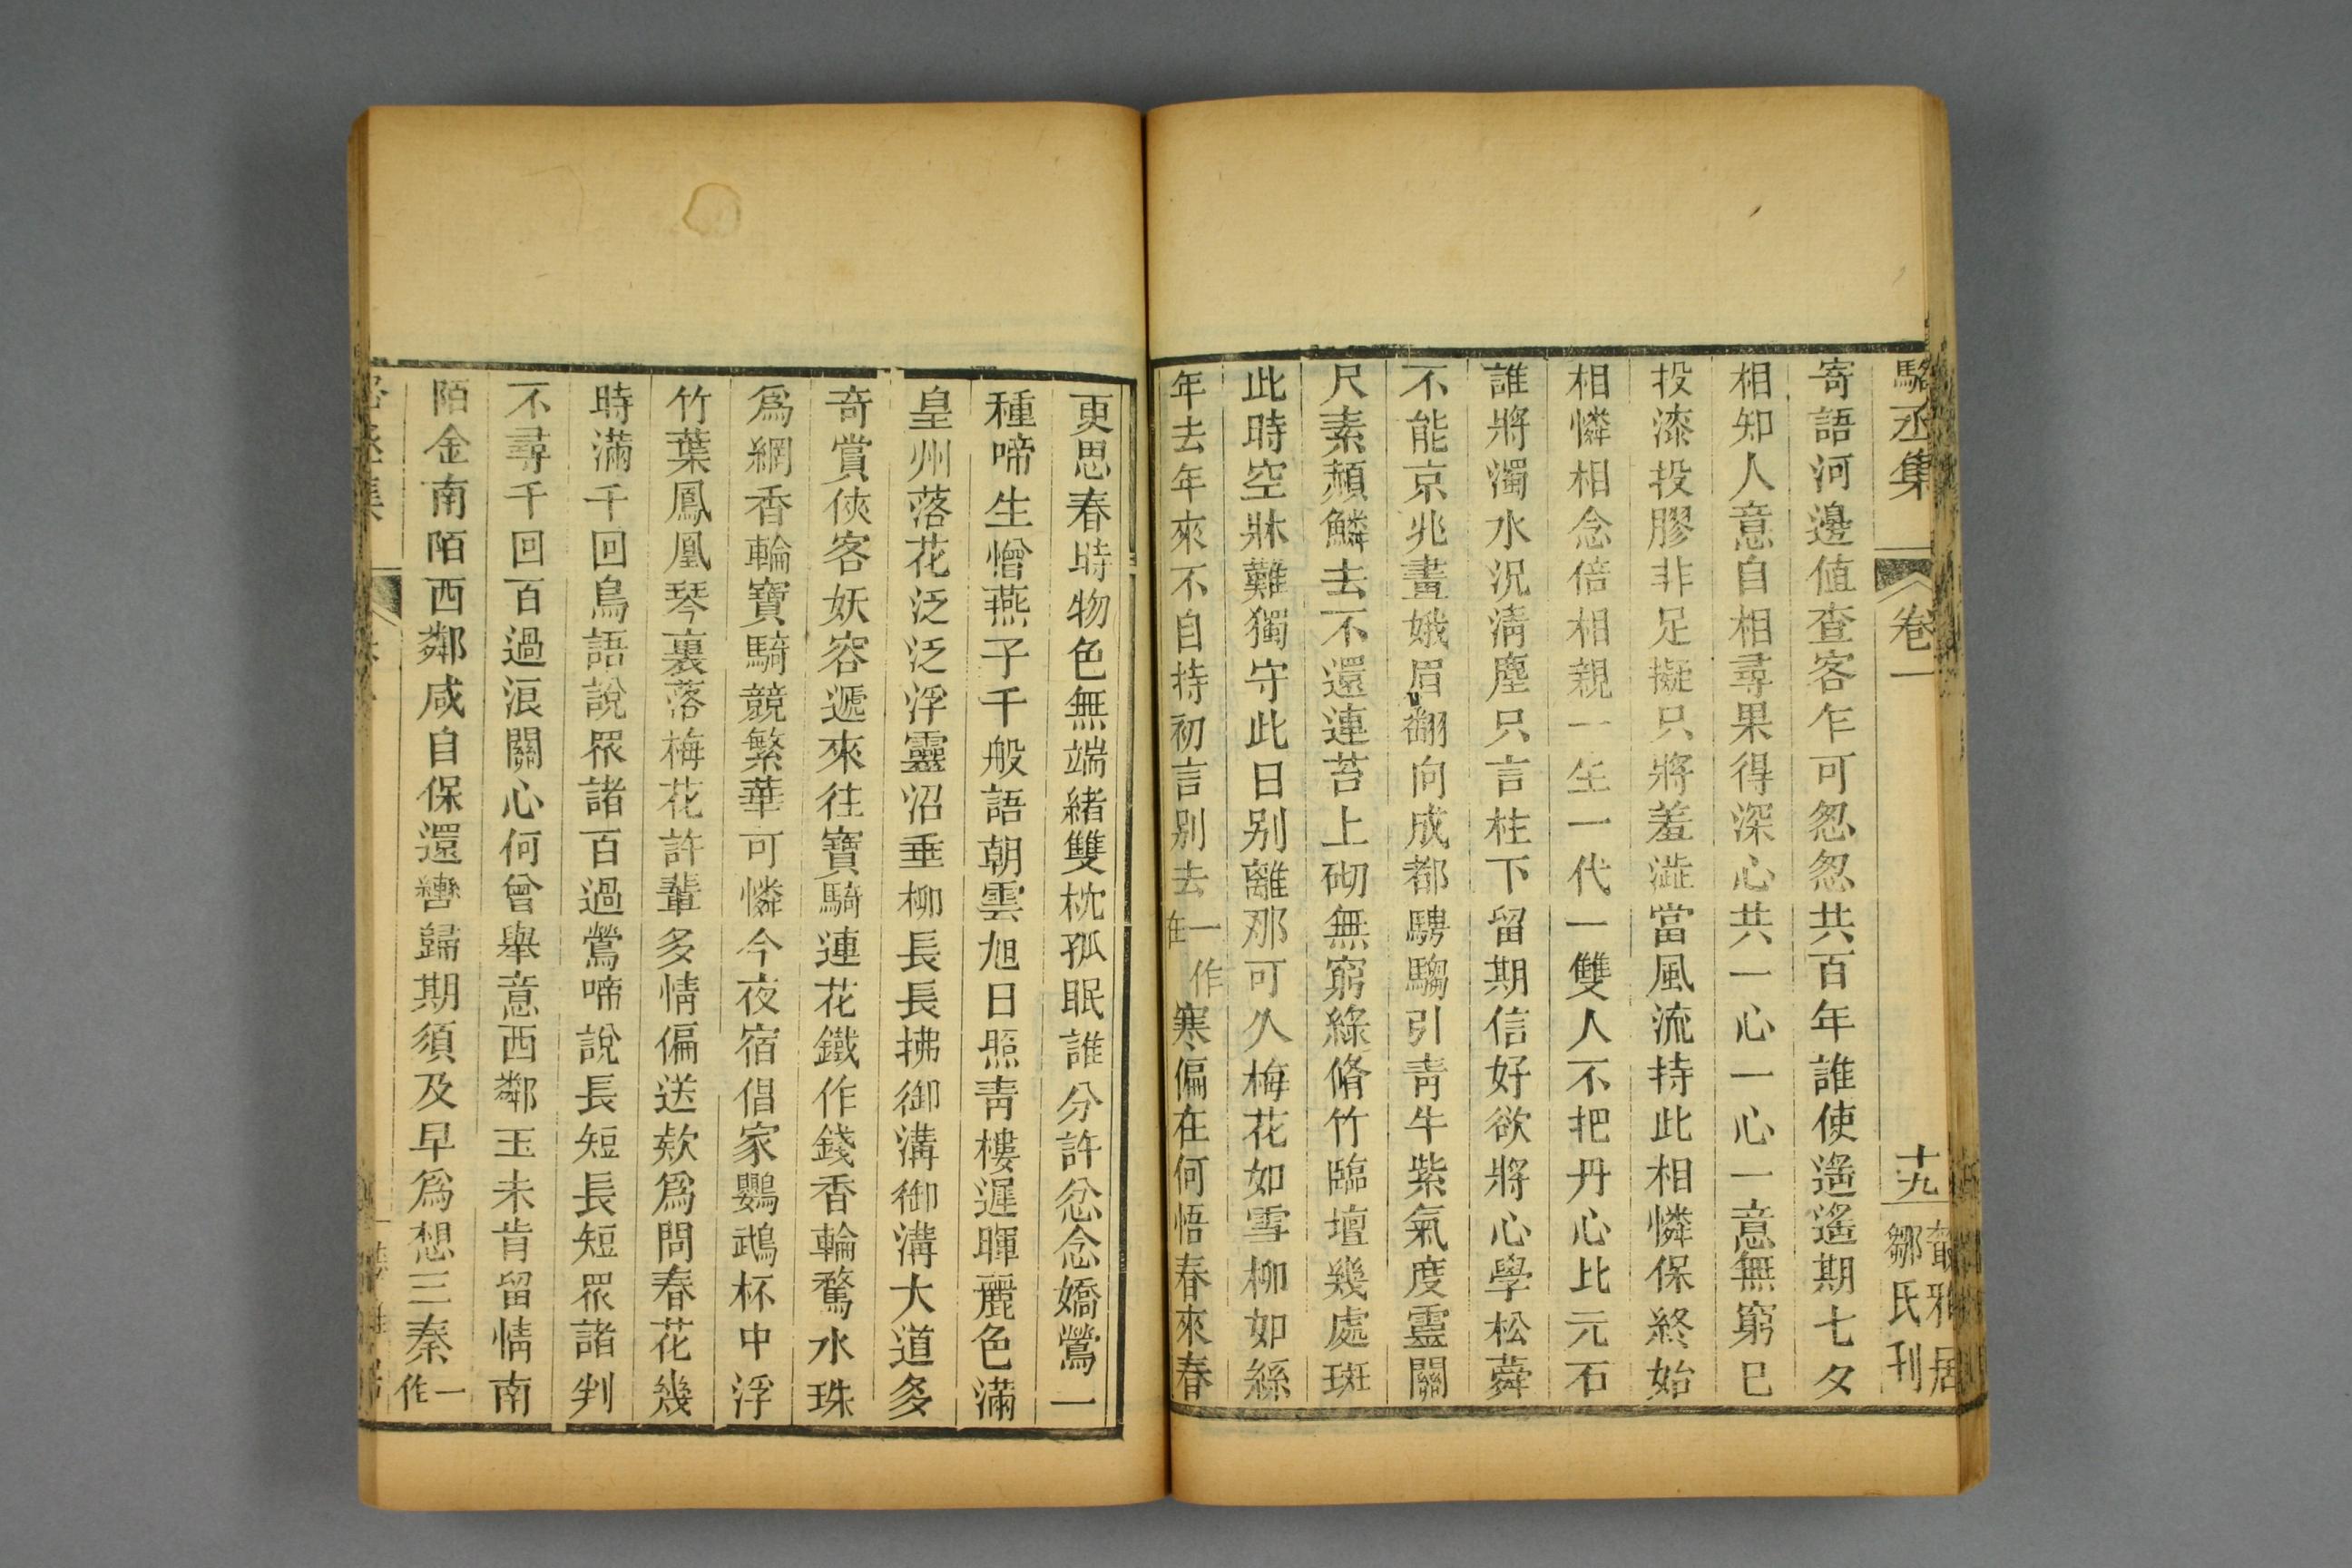 駱丞集 卷一 十九 叢雅居 鄒氏刊
寄語河邊值查客乍可怱怱共百年誰使遥遥期七夕
相知人意自相尋果得深心共一心一心一意無窮巳
投漆投膠非足擬只將羞澁當風流持此相憐保終始
相憐相念倍相親一生一代一雙人不把丹心比元石
誰將濁水況淸塵只言柱下留期信好欲將心學松蕣
不能京兆畫娥眉翻向成都騁騶引靑牛紫氣度靈關
尺素頳鱗去不還連苔上砌無窮綠脩竹臨壇幾處斑
此時空牀難獨守此日别離那可久梅花如雪柳如絲
年去年來不自持初言别去一作在寒偏在何悟春來春
更思春時物色無端緒雙枕孤眠誰分許忿念嬌鶯一
種啼生憎燕子千般語朝雲旭日照靑樓遲暉麗色滿
皇州落花泛泛浮靈沼垂柳長長拂御溝御溝大道多
奇賞俠客妖容遞來往寶騎連花鐵作錢香輪騖水珠
爲網香輪寶騎競繁華可憐今夜宿倡家鸚鵡杯中浮
竹葉鳳凰琴裏落梅花許輩多情偏送欵爲問春花幾
時滿千回鳥語說眾諸百過鶯啼說長短長短眾諸判
不尋千回百過浪關心何曾舉意西鄰玉未肯留情南
陌金南陌西鄰咸自保還轡歸期須及早爲想三秦一作